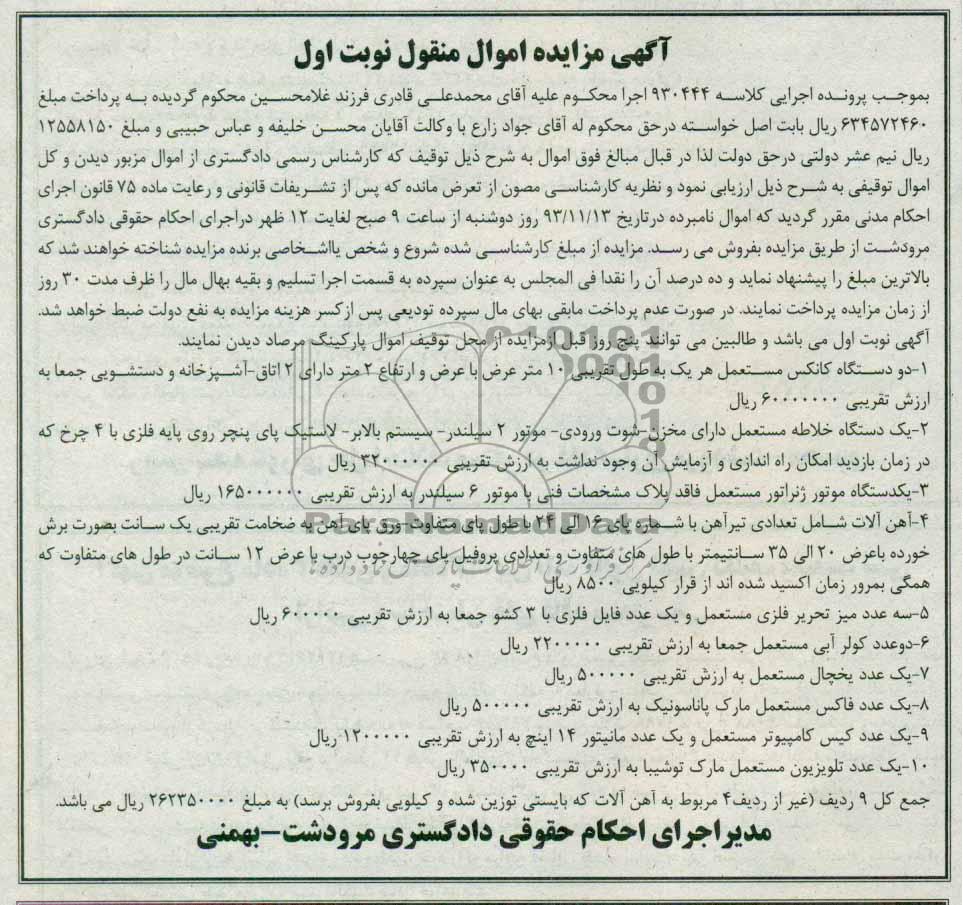 آگهی مزایده اموال منقول نوبت اول
بموجب پرونده اجرایی کلاسه ۹۳۰۴۴۴ اجرا محکوم علیه آقای محمدعلی قادری فرزند غلامحسین محکوم گردیده به پرداخت مبلغ
۶۳۴۵۷۲۴۶۰ ریال بابت اصل خواسته درحق محکوم له آقای جواد زارع با وکالت آقایان محسن خلیفه و عباس حبیبی و مبلغ ۱۲۵۵۸۱۵۰
ریال نیم عشر دولتی درحق دولت لذا در قبال مبالغ فوق اموال به شرح ذیل توقیف که کارشناس رسمی دادگستری از اموال مزبور دیدن و کل
اموال توقیفی به شرح ذیل ارزیابی نمود و نظریه کارشناسی مصون از تعرض مانده که پس از تشریفات قانونی و رعایت ماده ۷۵ قانون اجرای
احکام مدنی مقرر گردید که اموال نامبرده درتاریخ ۹۳/۱۱/۱۳ روز دوشنبه از ساعت ۹ صبح لغایت ۱۲ ظهر دراجرای احکام حقوقی دادگستری
مرودشت از طریق مزایده بفروش می رسد. مزایده از مبلغ کارشناسی شده شروع و شخص یااشخاصی برنده مزایده شناخته خواهند شد که
بالاترین مبلغ را پیشنهاد نماید و ده درصد آن را نقدا فی المجلس به عنوان سپرده به قسمت اجرا تسلیم و بقیه بهال مال را ظرف مدت ۳۰ روز
از زمان مزایده پرداخت نمایند. در صورت عدم پرداخت مابقی بهای مال سپرده تودیعی پس ازکسر هزینه مزایده به نفع دولت ضبط خواهد شد.
آگهی نوبت اول می باشد و طالبین می توانند پنج روز قبل ازمزایده از محل توقیف اموال پارکینگ مرصاد دیدن نمایند.
۱-دو دستگاه کانکس مستعمل هر یک به طول تقریبی ۱۰ متر عرض با عرض و ارتفاع ۲ متر دارای ۲ اتاق-آشپزخانه و دستشویی جمعا به
ارزش تقریبی ۶۰۰۰۰۰۰۰ ریال
۲-یک دستگاه خلاطه مستعمل دارای مخزن-شوت ورودی- موتور ۲ سیلندر- سیستم بالابر- لاستیک پای پنچر روی پایه فلزی با ۴ چرخ که
در زمان بازدید امکان راه اندازی و آزمایش آن وجود نداشت به ارزش تقریبی ۳۲۰۰۰۰۰۰ ریال
۳-یکدستگاه موتور ژنراتور مستعمل فاقد پلاک مشخصات فنی با موتور ۶ سیلندر به ارزش تقریبی ۱۶۵۰۰۰۰۰۰ ریال
۴-آهن آلات شامل تعدادی تیرآهن با شماره پای ۱۶ الی ۲۴ با طول پای متفاوت-ورق پای آهن به ضخامت تقریبی یک سانت بصورت برش
خورده باعرض ۲۰ الی ۳۵ سانتیمتر با طول های متفاوت و تعدادی پروفیل پای چهارچوب درب با عرض ۱۲ سانت در طول های متفاوت که
همگی بمرور زمان اکسید شده اند از قرار کیلویی ۸۵۰۰ ریال
۵-سه عدد میز تحریر فلزی مستعمل و یک عدد فایل فلزی با ۳ کشو جمعا به ارزش تقریبی ۶۰۰۰۰۰ ریال
۶-دوعدد کولر آبی مستعمل جمعا به ارزش تقریبی ۲۲۰۰۰۰۰ ریال
۷-یک عدد یخچال مستعمل به ارزش تقریبی ۵۰۰۰۰۰ ریال
۸-یک عدد فاکس مستعمل مارک پاناسونیک به ارزش تقریبی ۵۰۰۰۰۰ ریال
۹-یک عدد کیس کامپیوتر مستعمل و یک عدد مانیتور ۱۴ اینچ به ارزش تقریبی ۱۲۰۰۰۰۰ ریال
۱۰-یک عدد تلویزیون مستعمل مارک توشیبا به ارزش تقریبی ۳۵۰۰۰۰ ریال
جمع کل ۹ ردیف (غیر از ردیف۴ مربوط به آهن آلات که بایستی توزین شده و کیلویی بفروش برسد) به مبلغ ۲۶۲۳۵۰۰۰۰ ریال می باشد.
مدیراجرای احکام حقوقی دادگستری مرودشت-بهمنی
ParsNamadData